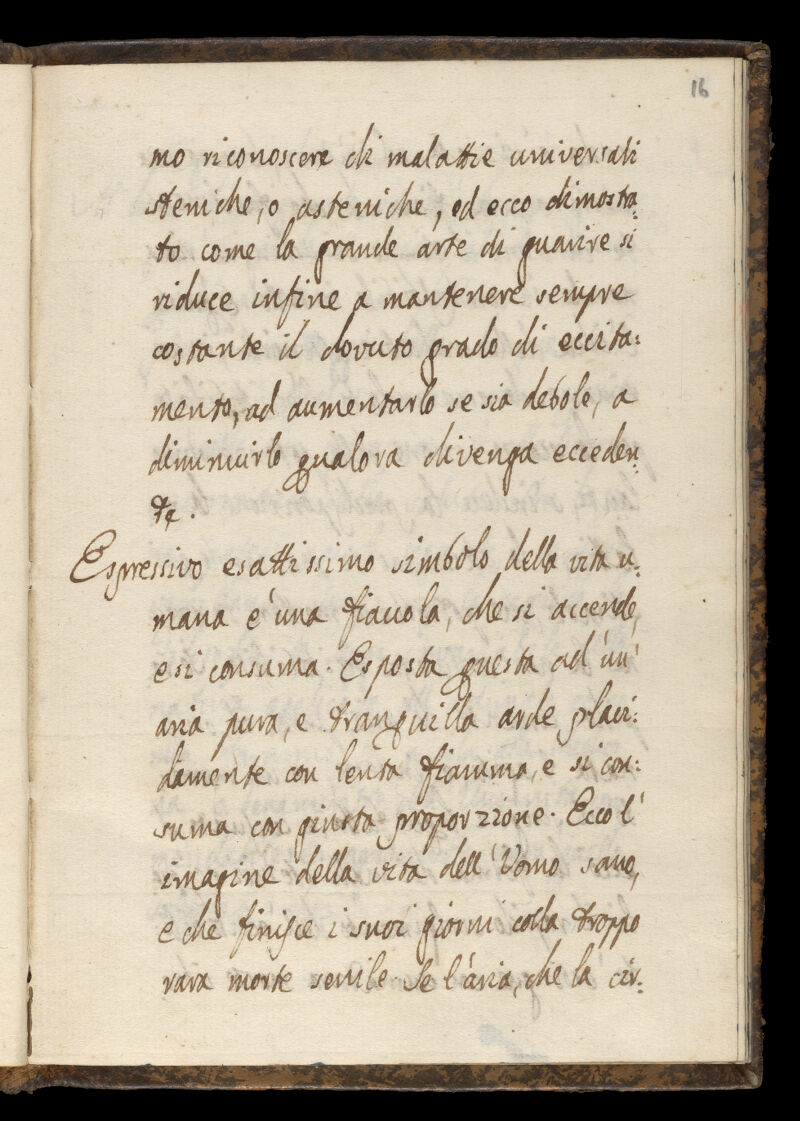 16
mo riconoscere di malattie universali
steniche, o asteniche, ed ecco dimostra:
to come la grande arte di guarire si
riduce infine a mantenere sempre
costante il dovuto grado di eccita:
mento, ad aumentarlo se sia debole, a
diminuirlo qualora divenga ecceden:
te.
Espressivo esattissimo simbolo della vita u:
mana é una fiacola, che si accende,
e si consuma. Esposta questa ad un'
aria pura, e tranquilla arde placi:
damente con lenta fiamma, e si con:
suma con giusta proporzione. Ecco l'
imagine della vita dell'Uomo sano,
e che finisce i suoi giorni colla troppo
rara morte senile. Se l'aria, che la cir: